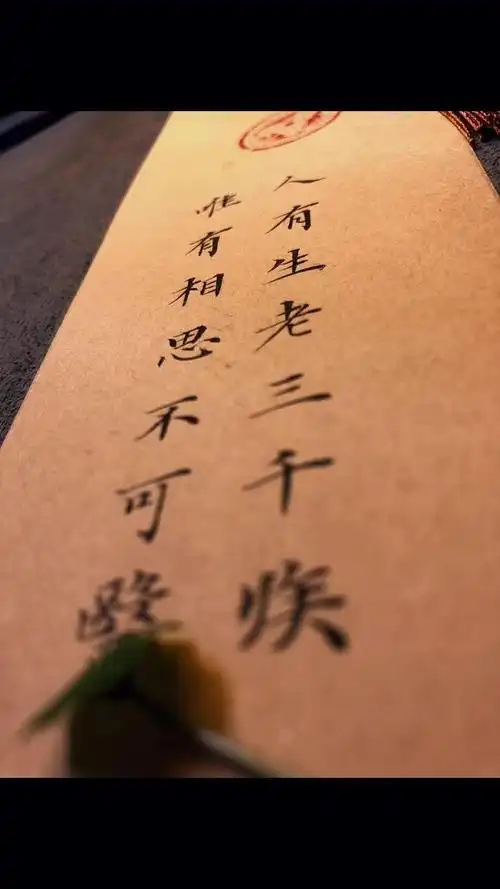 人有生老三千疾
唯有相思不可醫